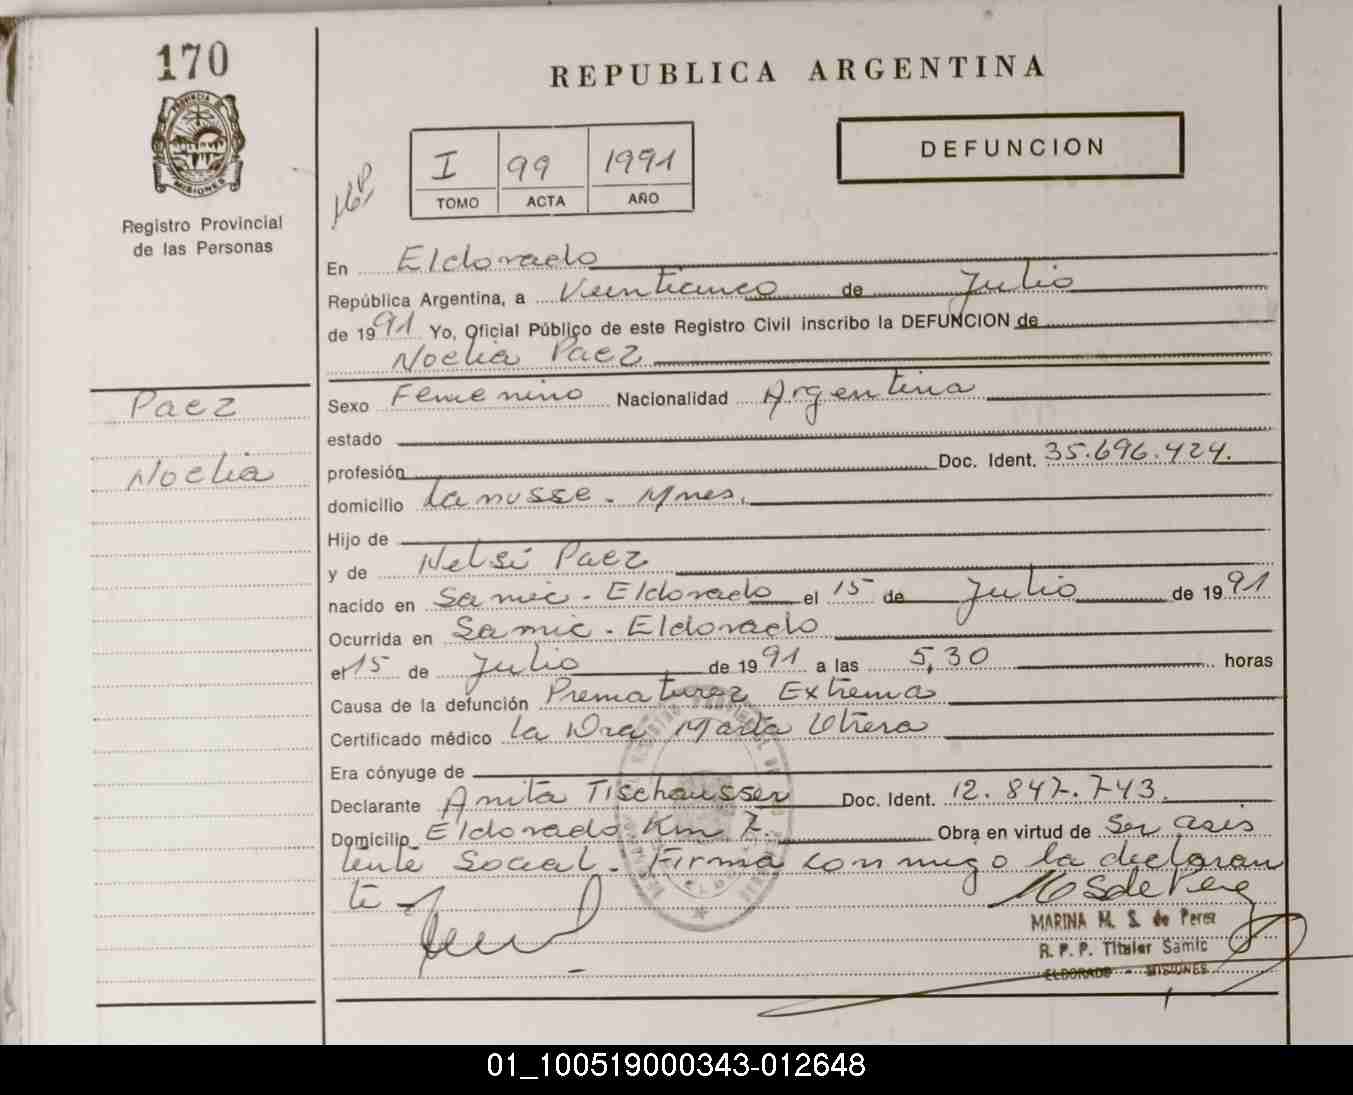 170
PROVINCIA DE
MISIONES
Registro Provincial
de las Personas
REPUBLICA ARGENTINA
I 99 1991
TOMO ACTA AÑO
DEFUNCION
En Eldorado
República Argentina, a Veinticinco de Julio
de 1991 Yo, Oficial Público de este Registro Civil inscribo la DEFUNCION de
Noelia Paez
Paez
Noelia
Sexo Femenino Nacionalidad Argentina
estado
profesión Doc. Ident. 35.696.424.
domicilio Lanusse. Mnes.
Hijo de
y de Nelsi Paez
nacido en Samic. Eldorado el 15 de Julio de 1991
Ocurrida en Samic. Eldorado
el 15 de Julio de 1991 a las 5,30 horas
Causa de la defunción Prematurez Extrema
Certificado médico La Dra Marta Utrera
Era cónyuge de
Declarante Anita Tischausser Doc. Ident. 12.847.743.
Domicilio Eldorado Km 7. Obra en virtud de Ser Asis
tente Social. Firma conmigo la declaran
te
MARINA M. S. de Perez
R. P. P. Titular Samic
ELDORADO - MISIONES
01_100519000343-012648